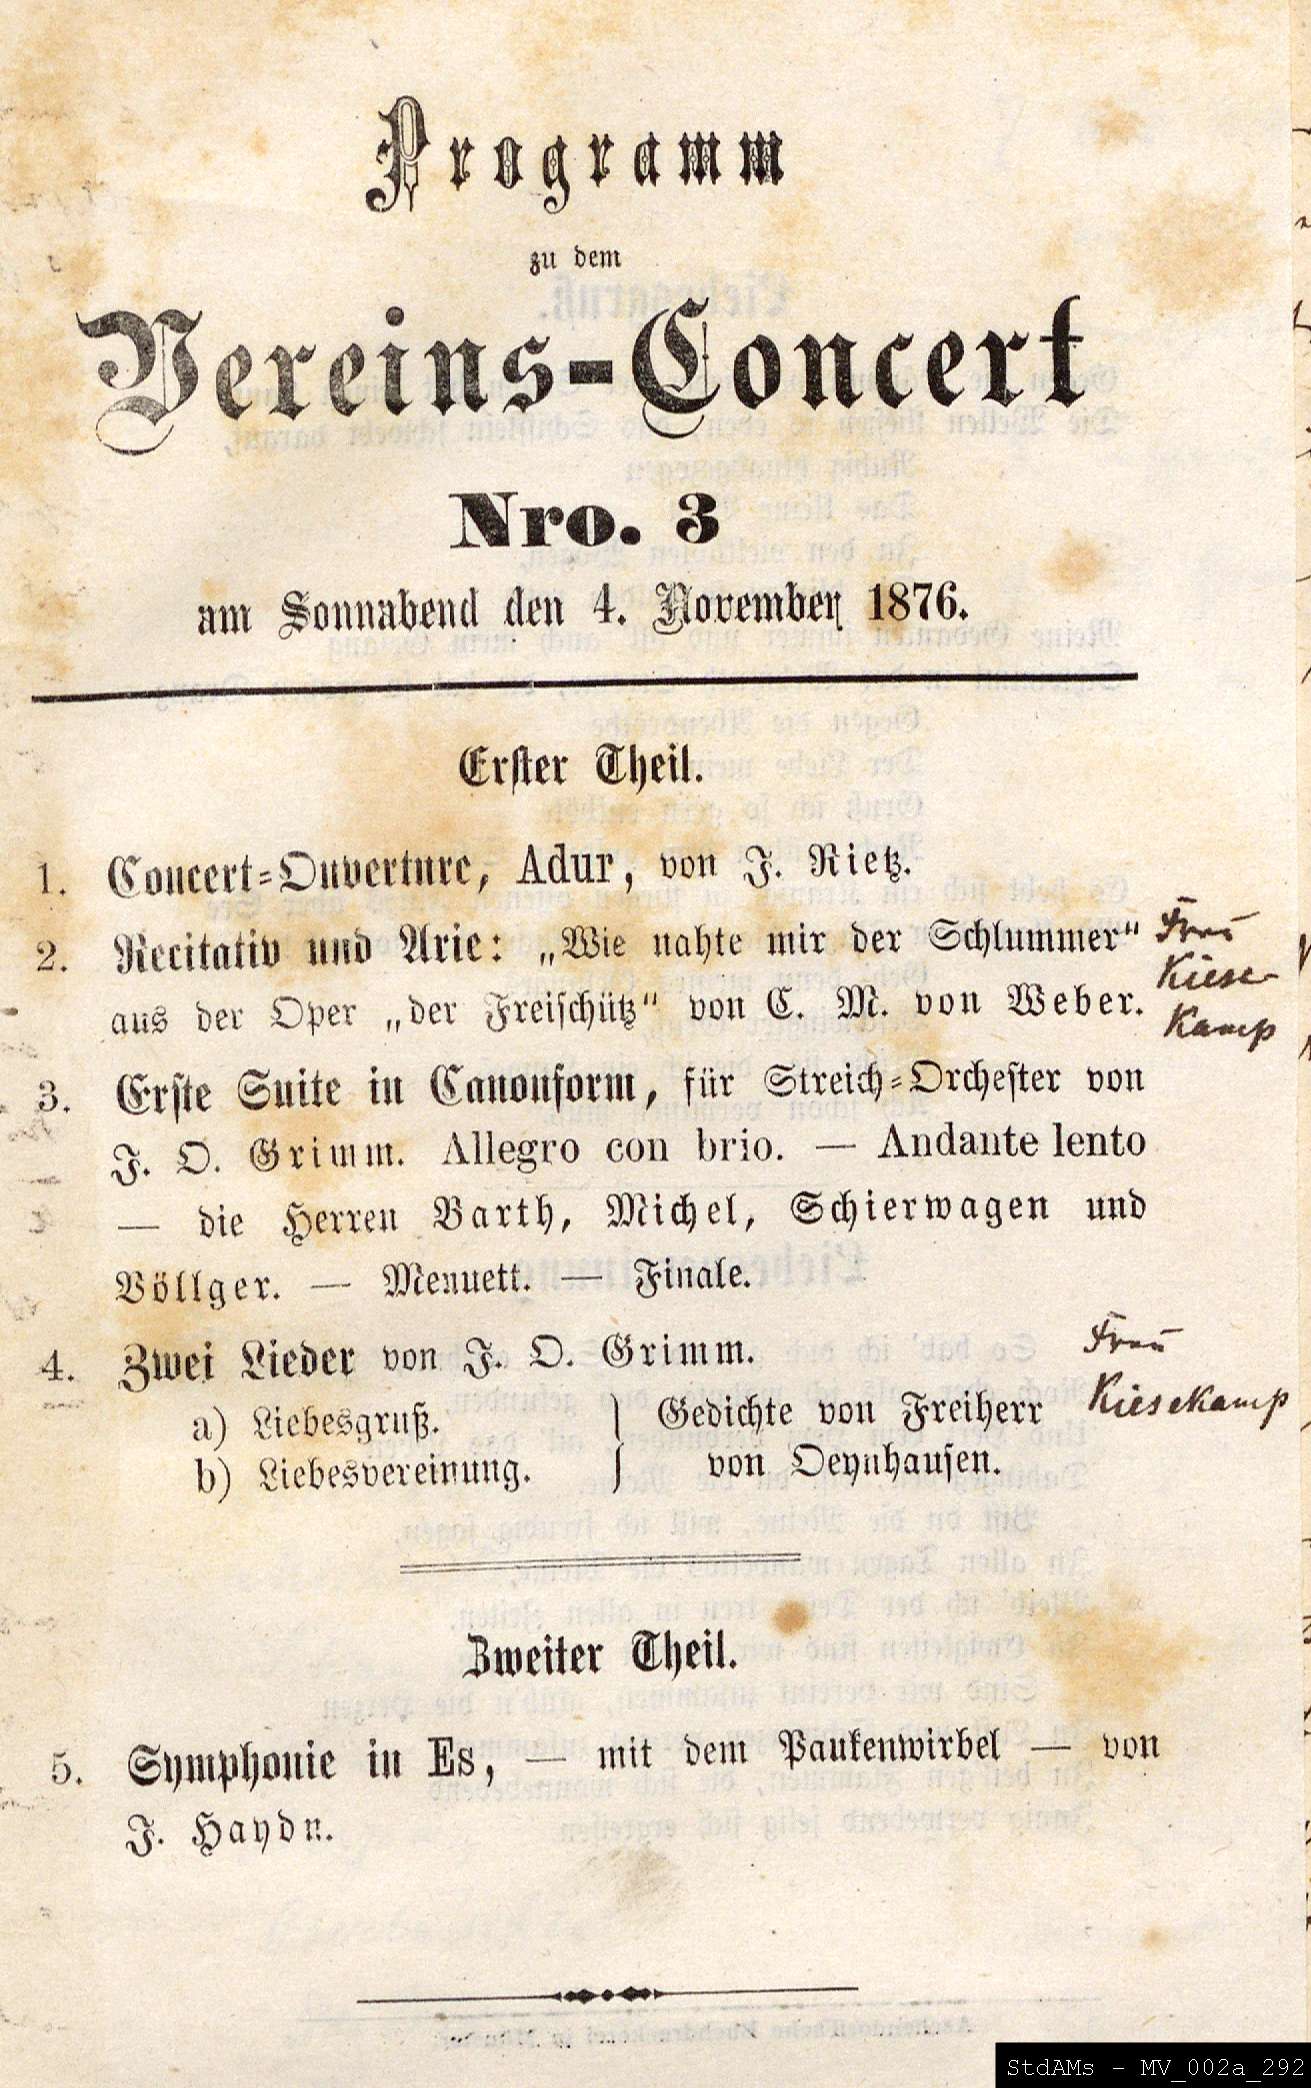 Programm
zu dem
Vereins-Concert
Nro. 3
am Sonnabend den 4. November 1876.
Erster Theil.
1. Concert-Ouverture, Adur, von J. Rietz.
2. Recitativ und Arie: „Wie nahte mir der Schlummer“
aus der Oper „der Freischütz“ von C. M. von Weber.
Frau
Kiese-
kamp
3. Erste Suite in Canonform, für Streich-Orchester von
J. O. Grimm. Allegro con brio. — Andante lento
— die Herren Barth, Michel, Schierwagen und
Völlger. — Menuett. — Finale.
4. Zwei Lieder von J. O. Grimm.
a) Liebesgruß.
b) Liebesvereinung.
Gedichte von Freiherr
von Oeynhausen.
Frau
Kiesekamp
Zweiter Theil.
5. Symphonie in Es, — mit dem Paukenwirbel — von
J. Haydn.
StdAMs - MV_002a_292